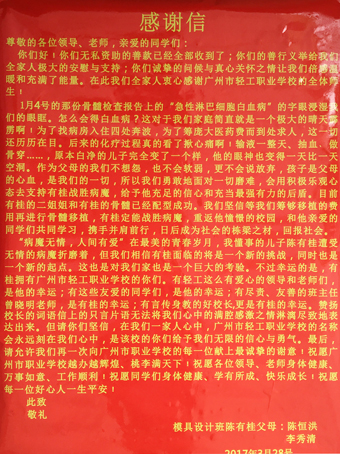 感谢信
尊敬的各位领导、老师，亲爱的同学们：
你们好！你们无私资助的善款已经全部收到了；你们的善行义举给我们
全家人极大的安慰与支持；你们诚挚的问候与真心关怀之情让我们倍感温
暖和充满了能量。在此我们全家人衷心感谢广州市轻工职业学校的全体师
生！
1月4号的那份骨髓检查报告上的“急性淋巴细胞白血病”的字眼浸湿我
们的眼眶。怎么会得白血病？这对于我们家庭简直就是一个极大的晴天霹
雳啊！为了找病房入住四处奔波，为了筹庞大医药费而到处求人，这一切
还历历在目。后来的化疗过程真的看了揪心痛啊！输液一整天、抽血、做
骨穿……，原本白净的儿子完全变了一个样，他的眼神也变得一天比一天
空洞。作为父母的我们不想怨，也不会软弱，更不会说放弃，孩子是父母
的心血，是我们的一切，所以我们勇敢地面对一切磨难，会用积极乐观心
态去支持有桂战胜病魔，给予他充足的信心和充当最强有力的后盾。目前
有桂的二姐姐和有桂的骨髓已经配型成功。我们坚信等我们筹够移植的费
用再进行骨髓移植，有桂定能战胜病魔，重返他憧憬的校园，和他亲爱的
同学们共同学习，携手并肩前行，日后成为社会的栋梁之材，回报社会。
“病魔无情，人间有爱”在最美的青春岁月，我懂事的儿子陈有桂遭受
无情的病魔折磨着，但我们相信有桂面临的将是一个新的挑战，同时也是
一个新的起点。这也是对我们家也是一个巨大的考验。不过幸运的是，有
桂拥有广州市轻工职业学校的你们。有轻工这么有爱心的领导和老师们，
是他的幸运；有这些友爱的同学们，是他的幸运；有尽责、友善的班主任
曾晓明老师，是有桂的幸运；有言传身教的好校长,更是有桂的幸运。赞扬
校长的词语信上的只言片语无法将我们心中的满腔感激之情淋漓尽致地表
达出来。但请你们坚信，在我们一家人心中，广州市轻工职业学校的名称
会永远刻在我们心中，是该校的你们给予我们无限的信心与勇气。最后，
请允许我们再一次向广州市职业学校的每一位献上最诚挚的谢意！祝愿广
州市职业学校越办越辉煌、桃李满天下！祝愿各位领导、老师身体健康、
万事如意、工作顺利！祝愿同学们身体健康、学有所成、快乐成长！祝愿
每一位好心人一生平安！
此致
敬礼
模具设计班陈有桂父母：陈恒洪
李秀清
2017年3月28号